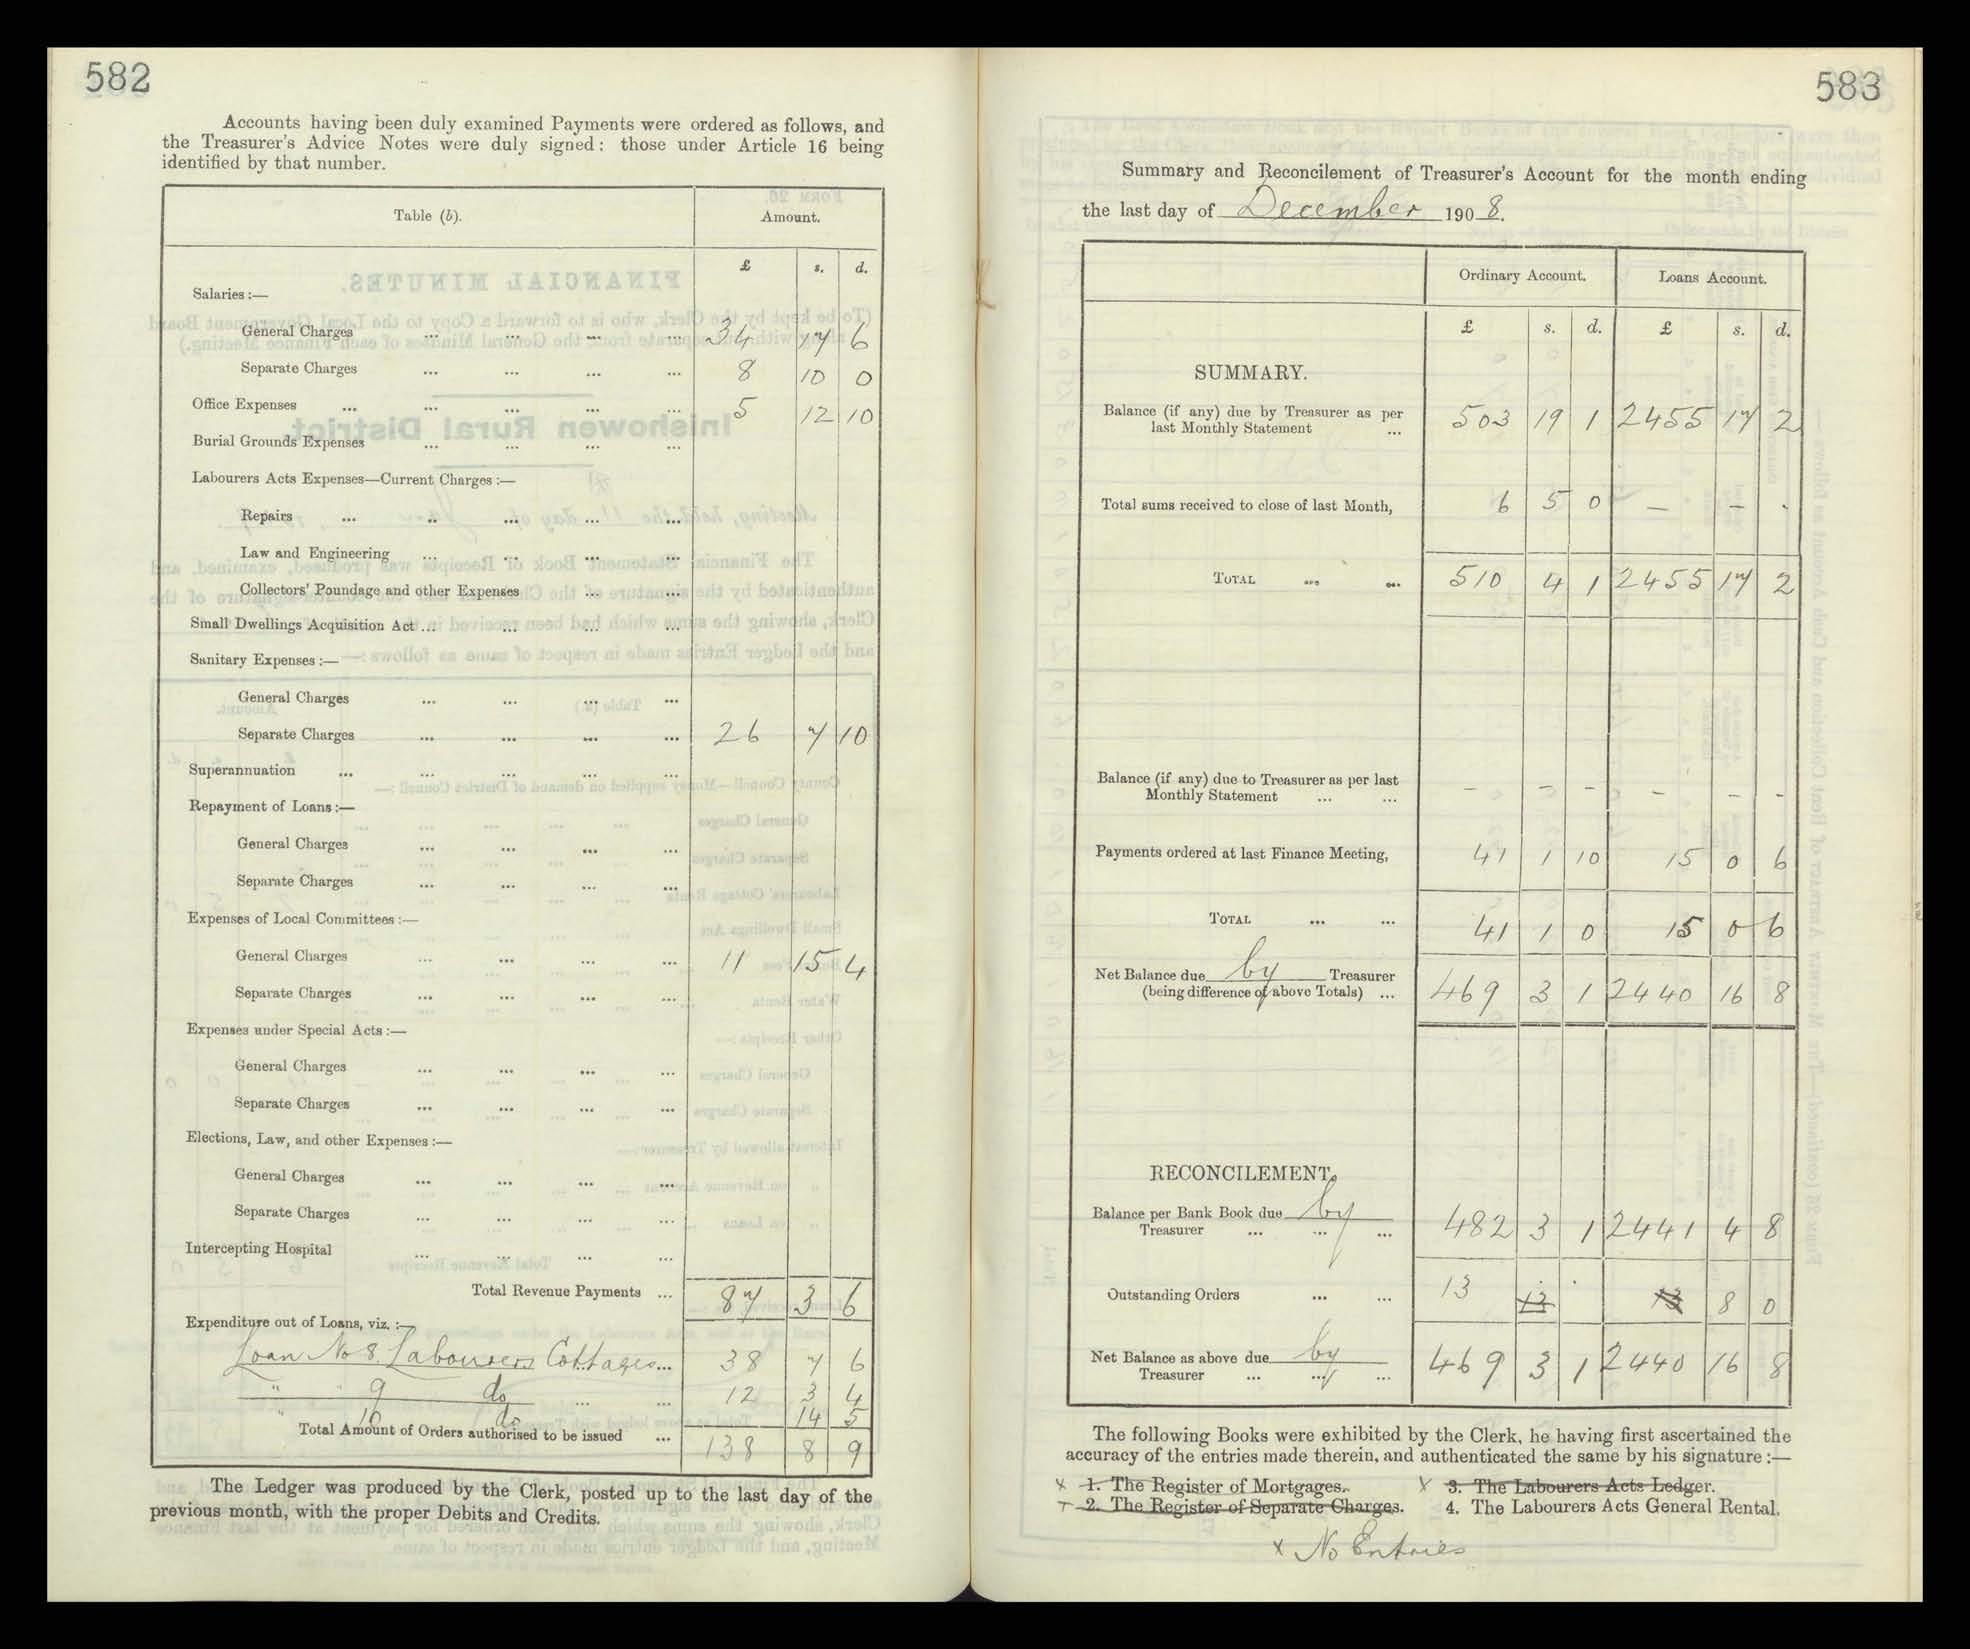 582
Accounts having been duly examined Payments were ordered as follows, and
the Treasurer's Advice Notes were duly signed: those under Article 16 being
identified by that number.
Table (b). Amount.
£ s. d.
Salaries :—
General Charges ... ... ... ... 34 17 6
Separate Charges ... ... ... ... 8 10 0
Office Expenses ... ... ... ... ... 5 12 10
Burial Grounds Expenses ... ... ... ...
Labourers Acts Expenses—Current Charges :—
Repairs ... ... ... ... ...
Law and Engineering ... ... ... ...
Collectors' Poundage and other Expenses ... ...
Small Dwellings Acquisition Act ... ... ... ...
Sanitary Expenses :—
General Charges ... ... ... ...
Separate Charges ... ... ... ... 26 7 10
Superannuation ... ... ... ... ...
Repayment of Loans :—
General Charges ... ... ... ...
Separate Charges ... ... ... ...
Expenses of Local Committees :—
General Charges ... ... ... ... 11 15 4
Separate Charges ... ... ... ...
Expenses under Special Acts :—
General Charges ... ... ... ...
Separate Charges ... ... ... ...
Elections, Law, and other Expenses :—
General Charges ... ... ... ...
Separate Charges ... ... ... ...
Intercepting Hospital ... ... ... ...
Total Revenue Payments ... 87 3 6
Expenditure out of Loans, viz. :—
Loan No 8. Labourers Cottages ... 38 7 6
" " 9 do ... ... 12 3 4
" 10 do 14 5
Total Amount of Orders authorised to be issued ... 138 8 9
The Ledger was produced by the Clerk, posted up to the last day of the
previous month, with the proper Debits and Credits.
583
Summary and Reconcilement of Treasurer's Account for the month ending
the last day of December 1908.
Ordinary Account. Loans Account.
£ s. d. £ s. d.
SUMMARY.
Balance (if any) due by Treasurer as per
last Monthly Statement ... 503 19 1 2455 17 2
Total sums received to close of last Month, 6 5 0 — — .
TOTAL ... ... 510 4 1 2455 17 2
Balance (if any) due to Treasurer as per last
Monthly Statement ... ... – – – – – –
Payments ordered at last Finance Meeting, 41 1 10 15 0 6
TOTAL ... ... 41 1 0 15 0 6
Net Balance due by Treasurer
(being difference of above Totals) ... 469 3 1 2440 16 8
RECONCILEMENT.
Balance per Bank Book due by
Treasurer ... ... ... 482 3 1 2441 4 8
Outstanding Orders ... ... 13 13 . 13 8 0
Net Balance as above due by
Treasurer ... ... ... 469 3 1 2440 16 8
The following Books were exhibited by the Clerk, he having first ascertained the
accuracy of the entries made therein, and authenticated the same by his signature :—
x 1. The Register of Mortgages. x 3. The Labourers Acts Ledger.
x 2. The Register of Separate Charges. 4. The Labourers Acts General Rental.
x No Entries